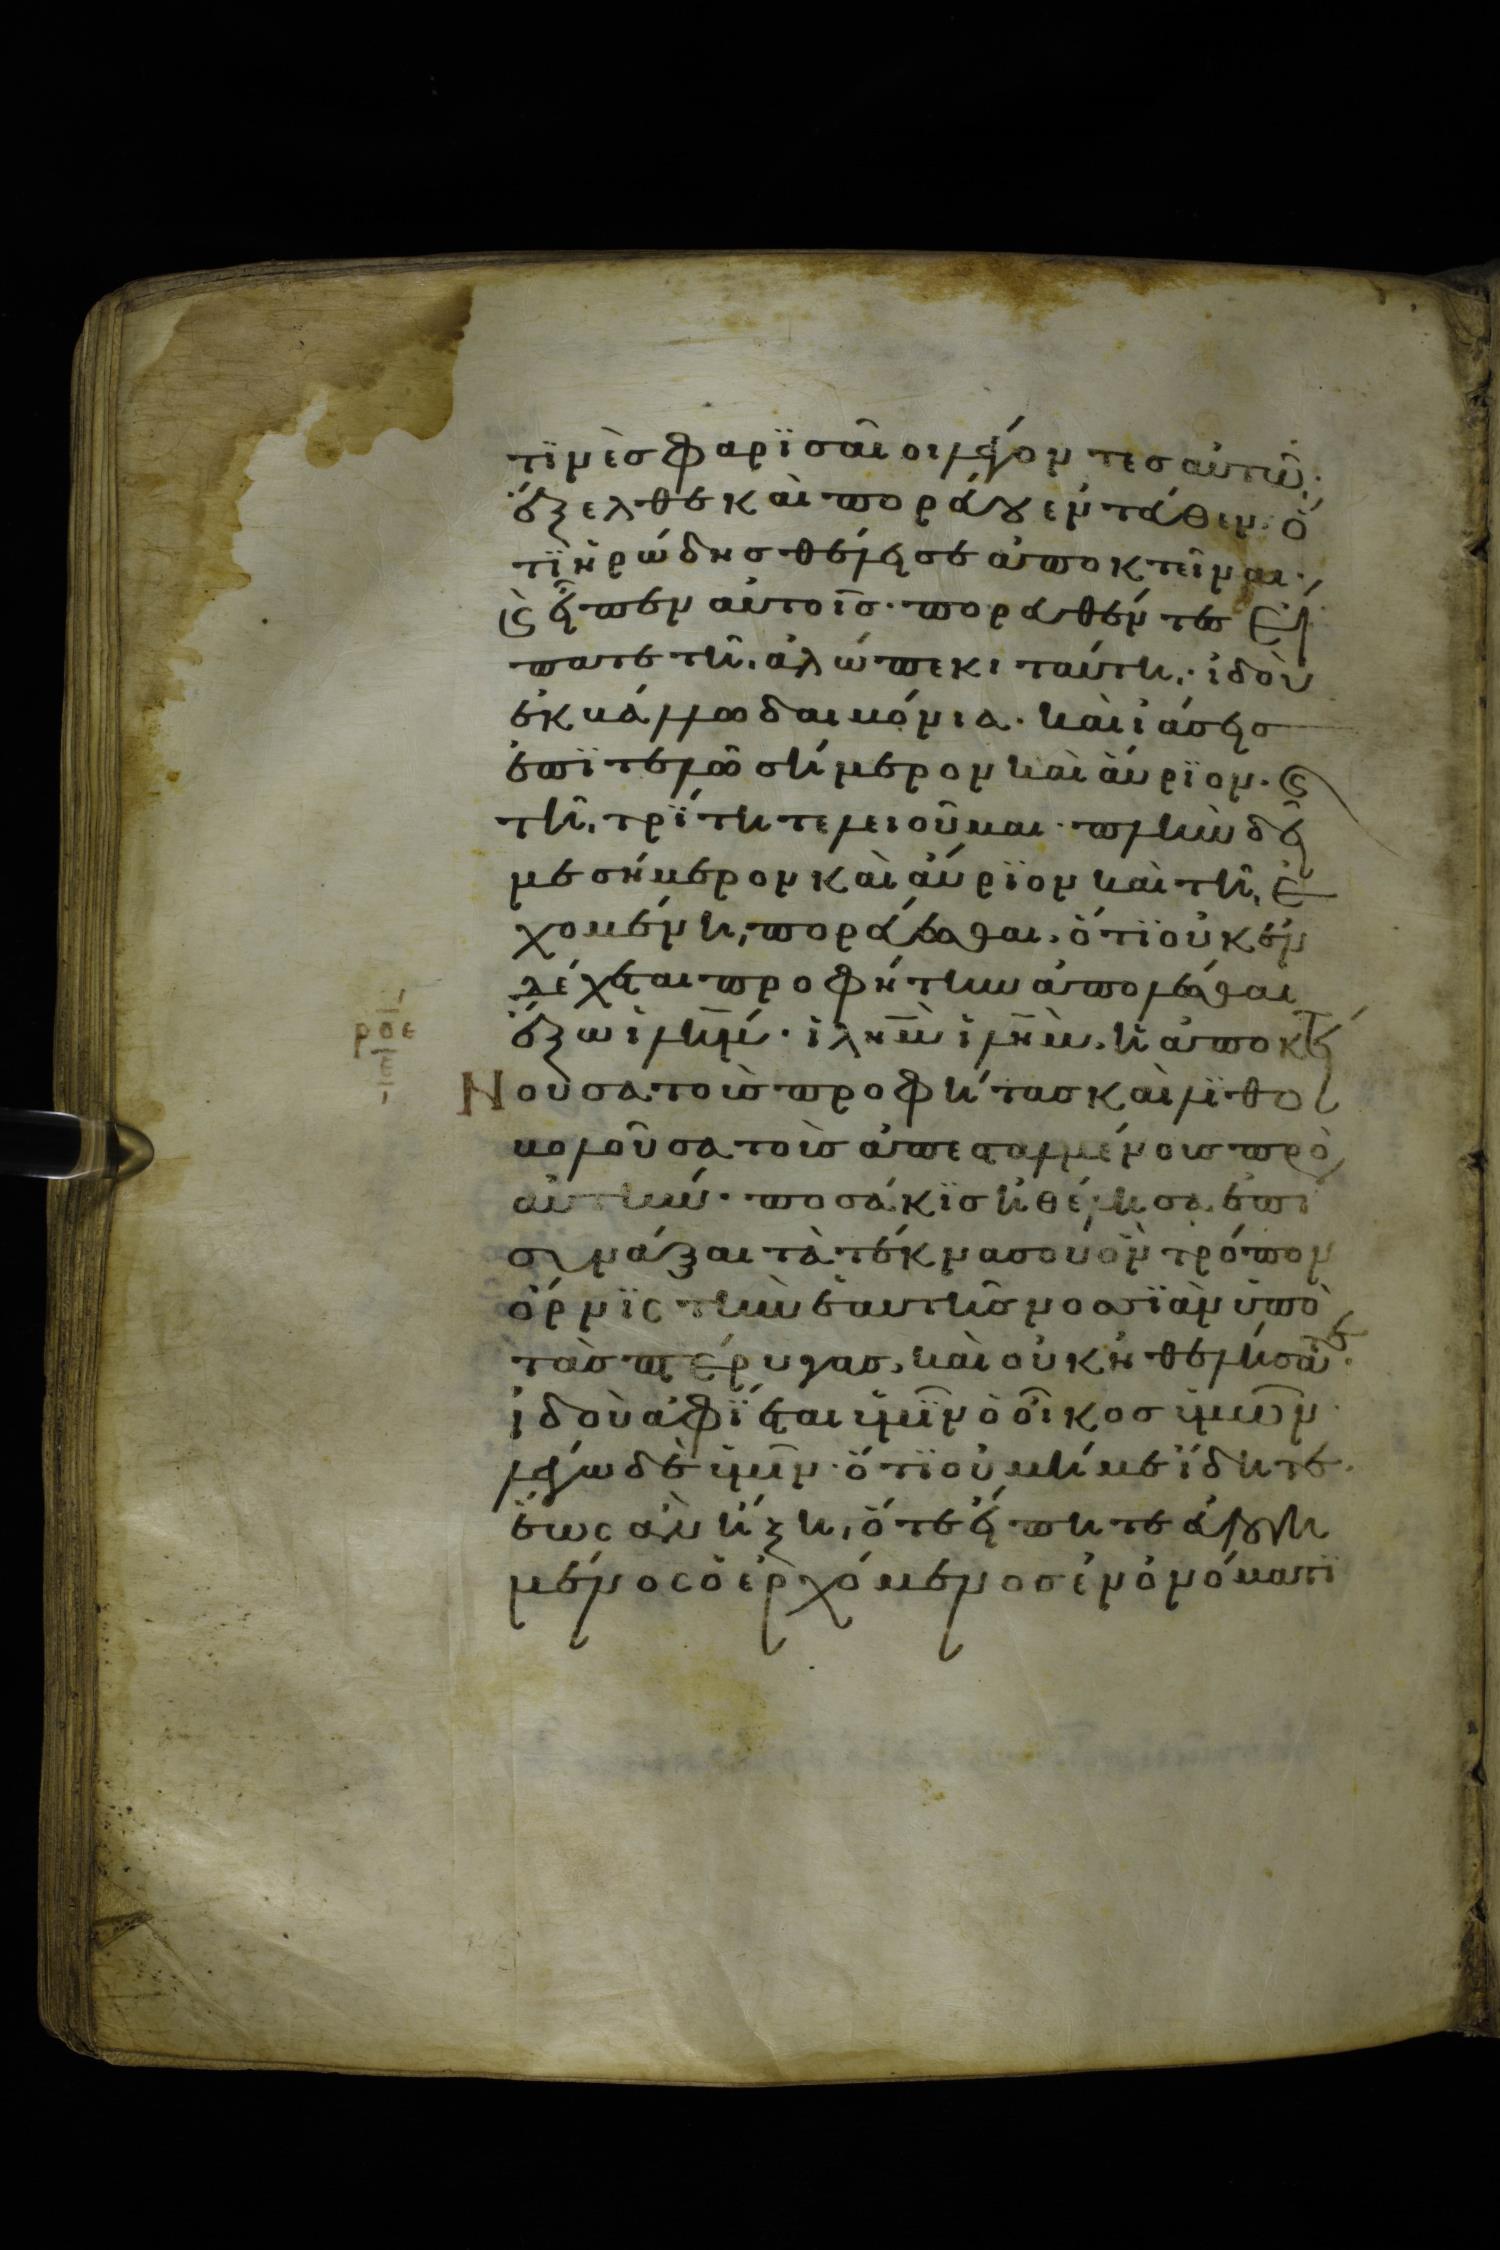 τϊνὲσ φαρϊσαῖοι λέγοντεσ αὐτῶ·
ἔξελθε καὶ πορεύου ἐντεύθεν· ὅ
τϊ ἡρώδησ θέλει σε ἀποκτεῖναι·
καὶ εἶπεν αὐτοῖσ· πορευθέντεσ εἴ
πατε τῆ ἀλώπεκι ταύτη· ἰδοὺ
ἐκβάλλω δαιμόνια· καὶ ἰάσεισ
ἐπϊτελῶ σήμερον καὶ ἄυρϊον· καὶ
τῆ τρίτη τελειοῦμαι· πλὴν δεῖ
με σήμερον καὶ ἄυρϊον καὶ τῆ ἐ
χομένη πορεύεσθαι· ὅτϊ οὐκ ἐν
δέχεται προφήτην ἀπολέσθαι
ἔξω ἱλὴμ· ἱλὴμ ἱλὴμ· ἡ ἀποκτέ
νουσα τοὺσ προφήτασ καὶ λϊθο
βολοῦσα τοὺσ ἀπεσταλμένουσ πρὸσ
αὐτήν· ποσάκϊσ ἠθέλησα ἐπι
συνάξαι τὰ τέκνα σου ὃν τρόπον
ὄρνϊς τὴν ἑαυτῆσ νοσσϊὰν ὑπὸ
τὰσ πτέρυγασ, καὶ οὐκ ἠθελήσατε·
ἰδοὺ ἀφϊεται ὑμῖν ὁ οἶκοσ ὑμῶν·
λέγω δὲ ὑμῖν· ὅτϊ οὐ μή με ἴδητε·
ἕως ἂν ἥξη, ὅτε εἴπητε εὐλογη
μένος ὁ ἐρχόμενοσ ἐν ὀνόματϊ
ροε
ε